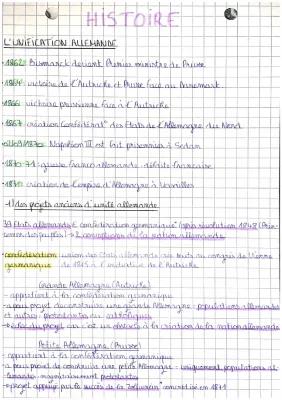 HISTOIRE
L'UNIFICATION ALLEMANDE
•1862: Bismarck devient Premier ministre de Prusse
•1864: victoire de l'Autriche et Prusse face au Danemark
•1866: victoire prussienne face à l'Autriche
•1867: création Confédérat° des Etats de l'Allemagne du Nord
1870: Napoléon III est fait prisonnier à Sedan
•1870-71: guerre franco-allemande: défaite française
•1871: création de l'empire d'Allemagne à Versailles
1) des projets anciens d'unité allemande
39 Etats allemands: confédération germanique (après révolution 1848 (Prin-
temps des peuples) → 2 conceptions de la nation allemande
•confédération germanique: union des Etats allemands au congrès de Vienne
de 1815 à l'autorité de l'Autriche
Grande Allemagne (Autriche)
- appartient à la confédération germanique
- a pour projet de construire une grande Allemagne: populations allemandes
et autres, protestantes ou catholiques
→ du projet car c'est un obstacle à la création de la nation allemande
Petite Allemagne (Prusse)
- appartient à la confédération germanique
- a pour projet de construire une petite Allemagne: uniquement populations al-
lemandes, majoritairement protestantes
→ projet appuyé par le succès de la Zollverein concrétisé en 1871